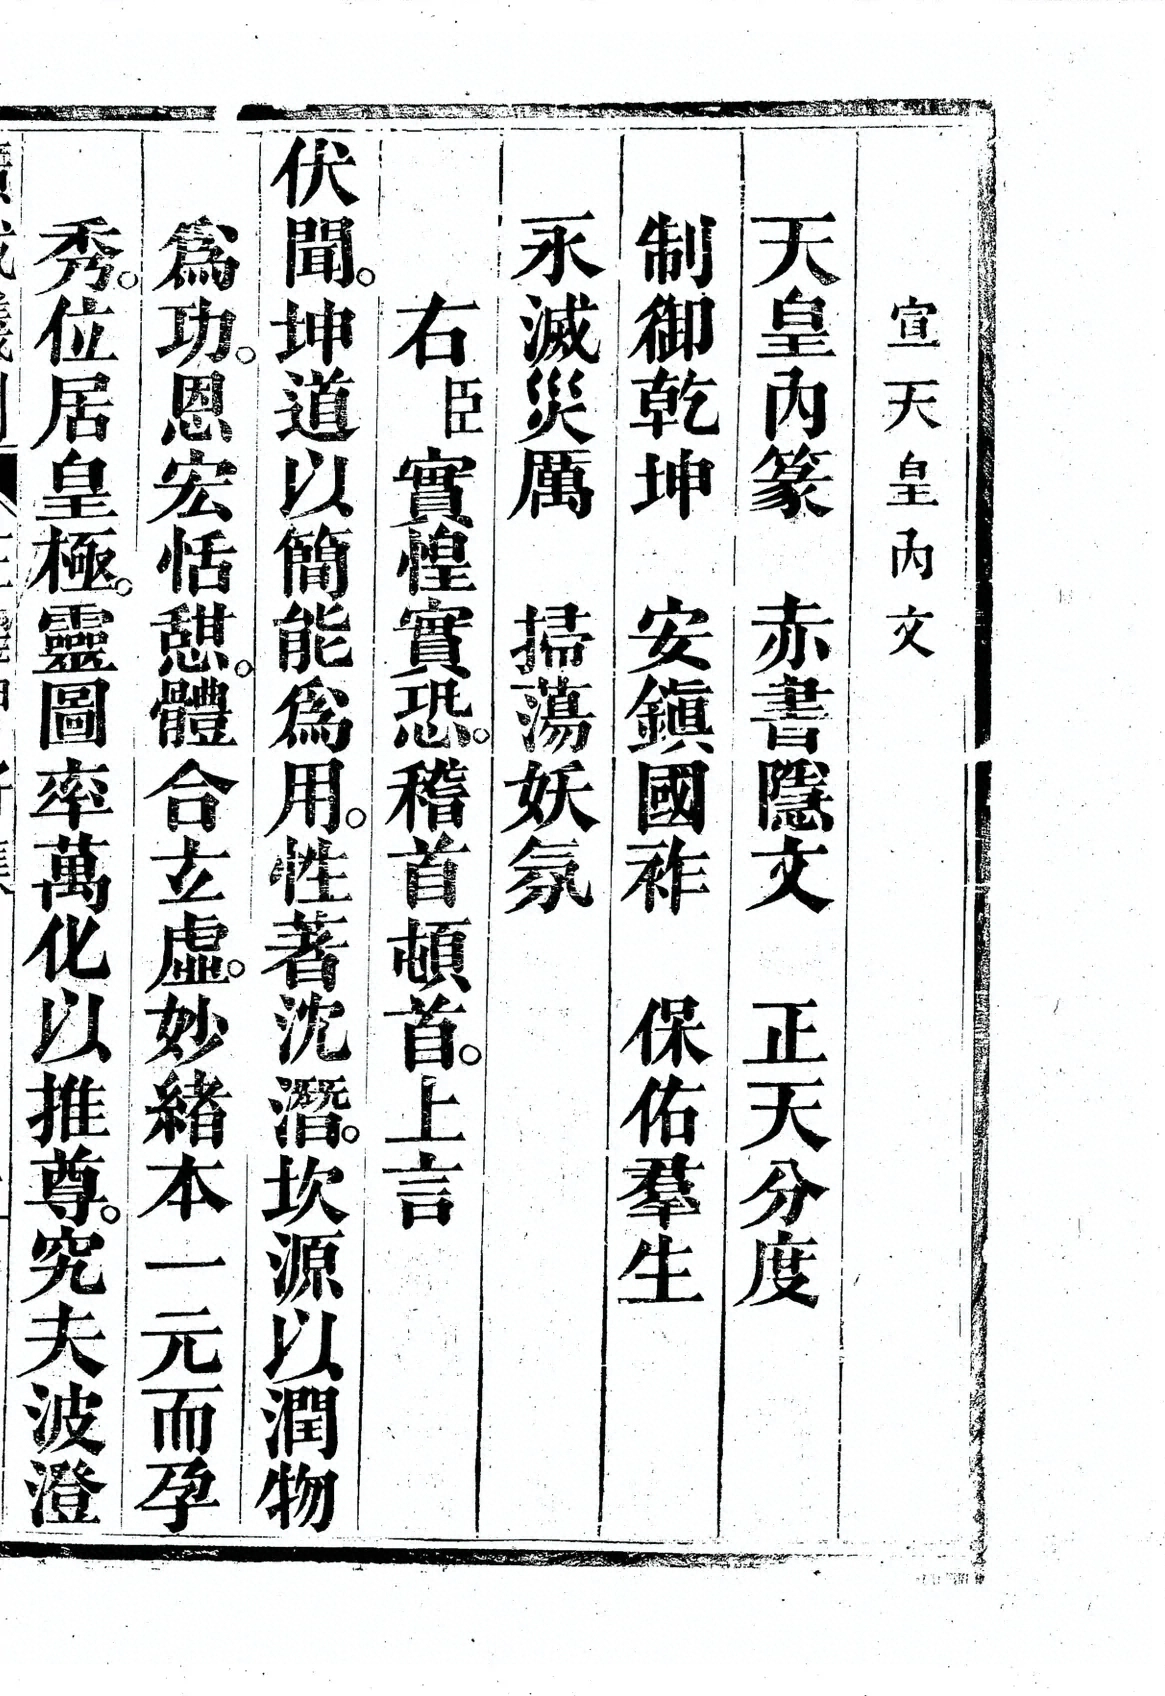 宣天皇內文
天皇內篆　赤書隱文　正天分度
制御乾坤　安鎭國祚　保佑羣生
永滅災厲　掃蕩妖氛
右臣實惶實恐。稽首頓首。上言
伏聞。坤道以簡能爲用。性著沈潛。坎源以潤物
爲功。恩宏恬憇。體合立虛。妙緒本一元而孕
秀。位居皇極。靈圖率萬化以推尊。究夫波澄